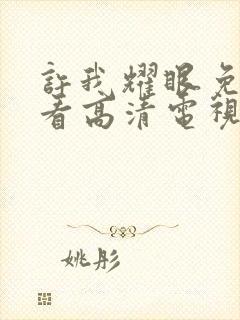 許我耀眼免
看高清電視
姚彤